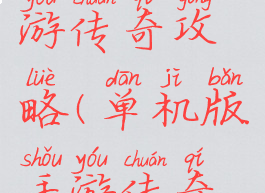 yóu chuán qí gōng
游传奇攻
lüè dān jī bǎn
略(单机版
shǒu yóu chuán qí
手游传奇